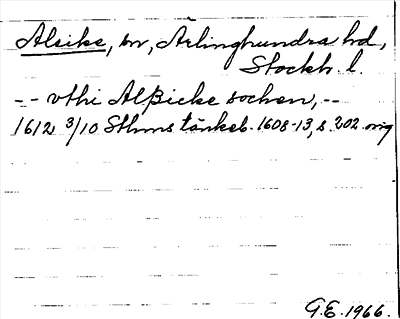 Alsike, sn, Ärlinghundra hd,
Stockh. l.
-- vthi Alßicke sochen, --
1612 3/10 Sthms tänkeb. 1608-13, s. 202 orig
G.E. 1966.